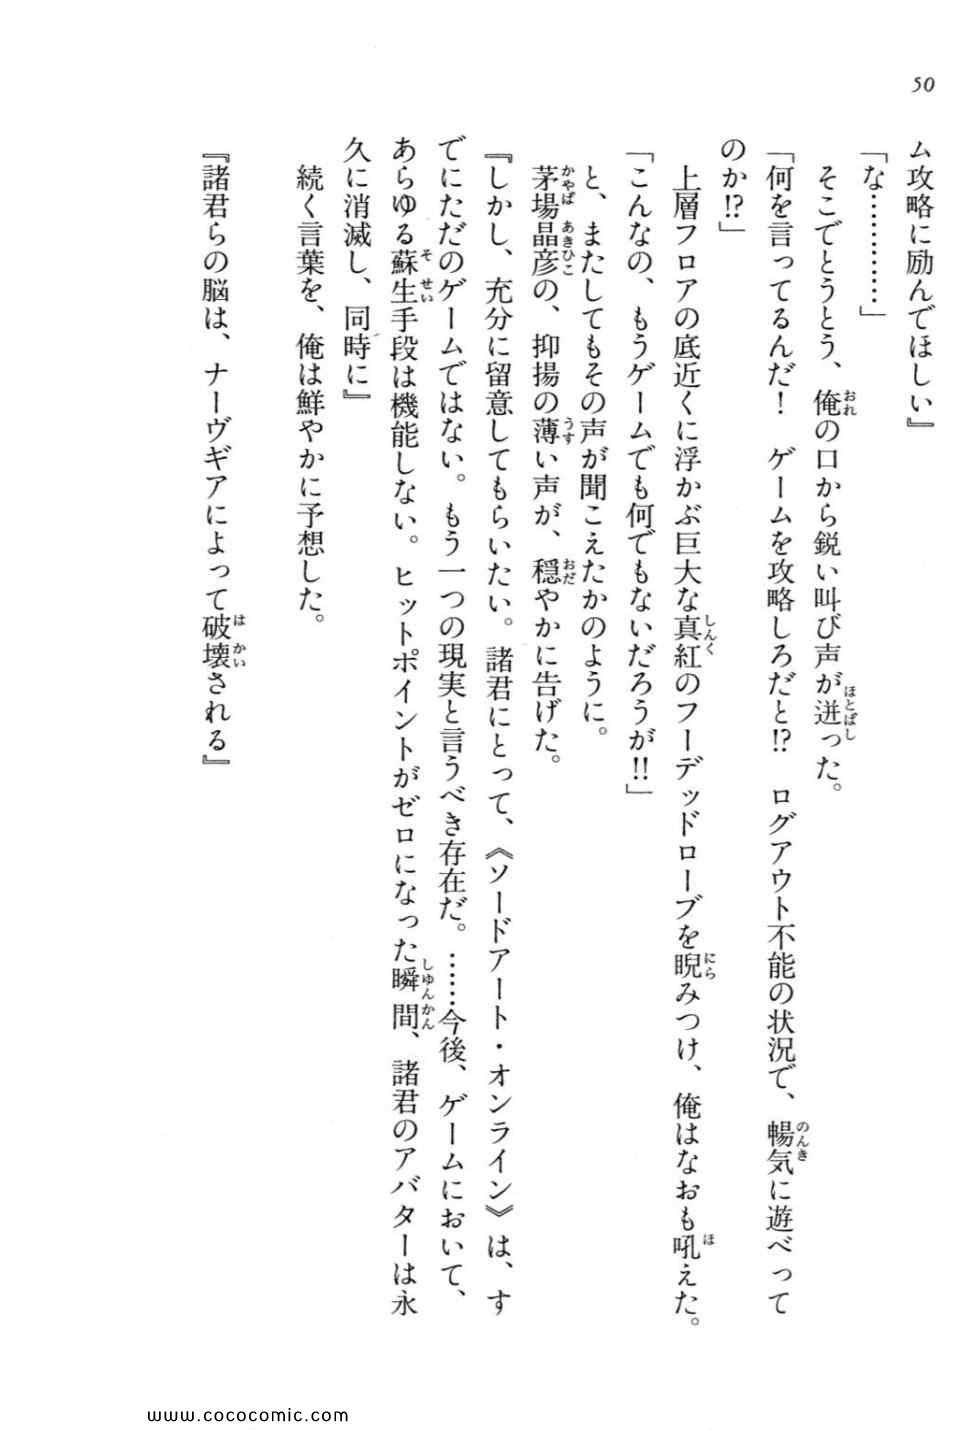 50
ム攻略に励んでほしい』
「な…………」
そこでとうとう、俺の口から鋭い叫び声が迸った。
「何を言ってるんだ！　ゲームを攻略しろだと!?　ログアウト不能の状況で、暢気に遊べって
のか!?」
上層フロアの底近くに浮かぶ巨大な真紅のフーデッドローブを睨みつけ、俺はなおも吼えた。
「こんなの、もうゲームでも何でもないだろうが!!」
と、またしてもその声が聞こえたかのように。
茅場晶彦の、抑揚の薄い声が、穏やかに告げた。
『しかし、充分に留意してもらいたい。諸君にとって、《ソードアート・オンライン》は、す
でにただのゲームではない。もう一つの現実と言うべき存在だ。……今後、ゲームにおいて、
あらゆる蘇生手段は機能しない。ヒットポイントがゼロになった瞬間、諸君のアバターは永
久に消滅し、同時に』
続く言葉を、俺は鮮やかに予想した。
『諸君らの脳は、ナーヴギアによって破壊される』
www.cococomic.com